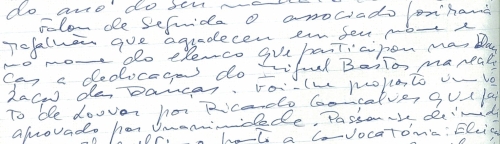 do ano do seu
Falou de seguida o associado
Magalhães que agradeceu em seu nome e
no nome do elenco que participou nas Dan
ças a dedicação do Miguel Bastos na reali
zação das Danças. Foi-lhe proposto um vo
to de Louvor por Ricardo Gonçalves que foi
aprovado por unanimidade. Passou-se de imedi
ponto a Convocatória: Eleiç